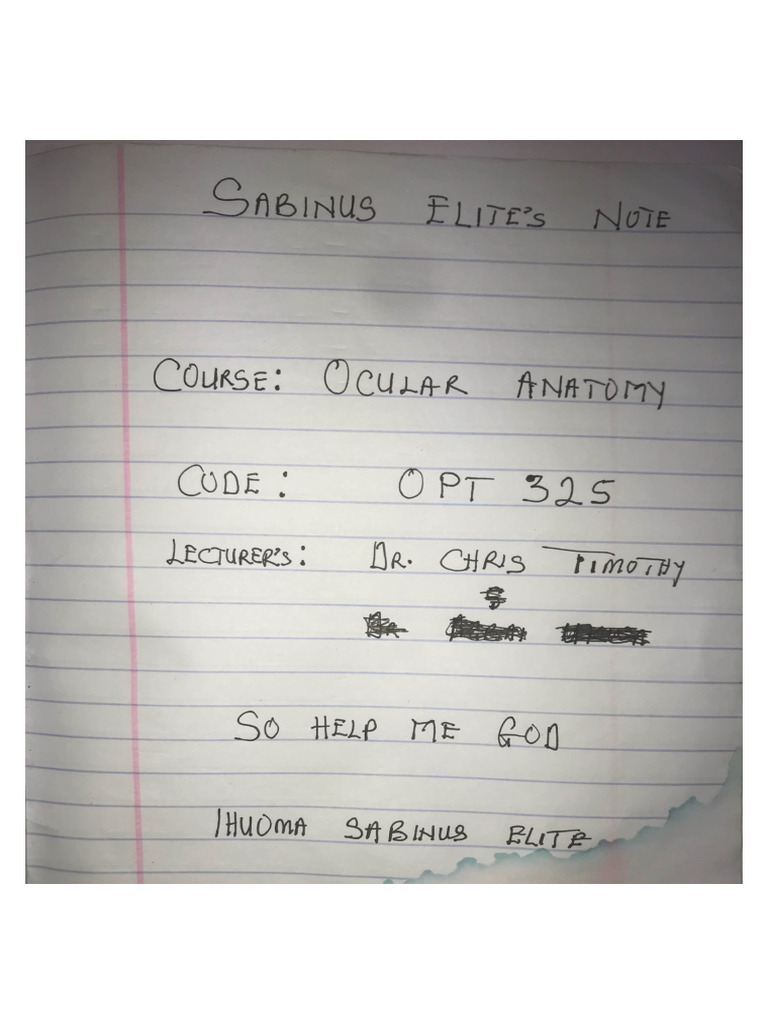 SABINUS ELITE'S NOTE
COURSE: OCULAR ANATOMY
CODE: OPT 325
LECTURER'S: DR. CHRIS TIMOTHY
SO HELP ME GOD
IHUOMA SABINUS ELITE